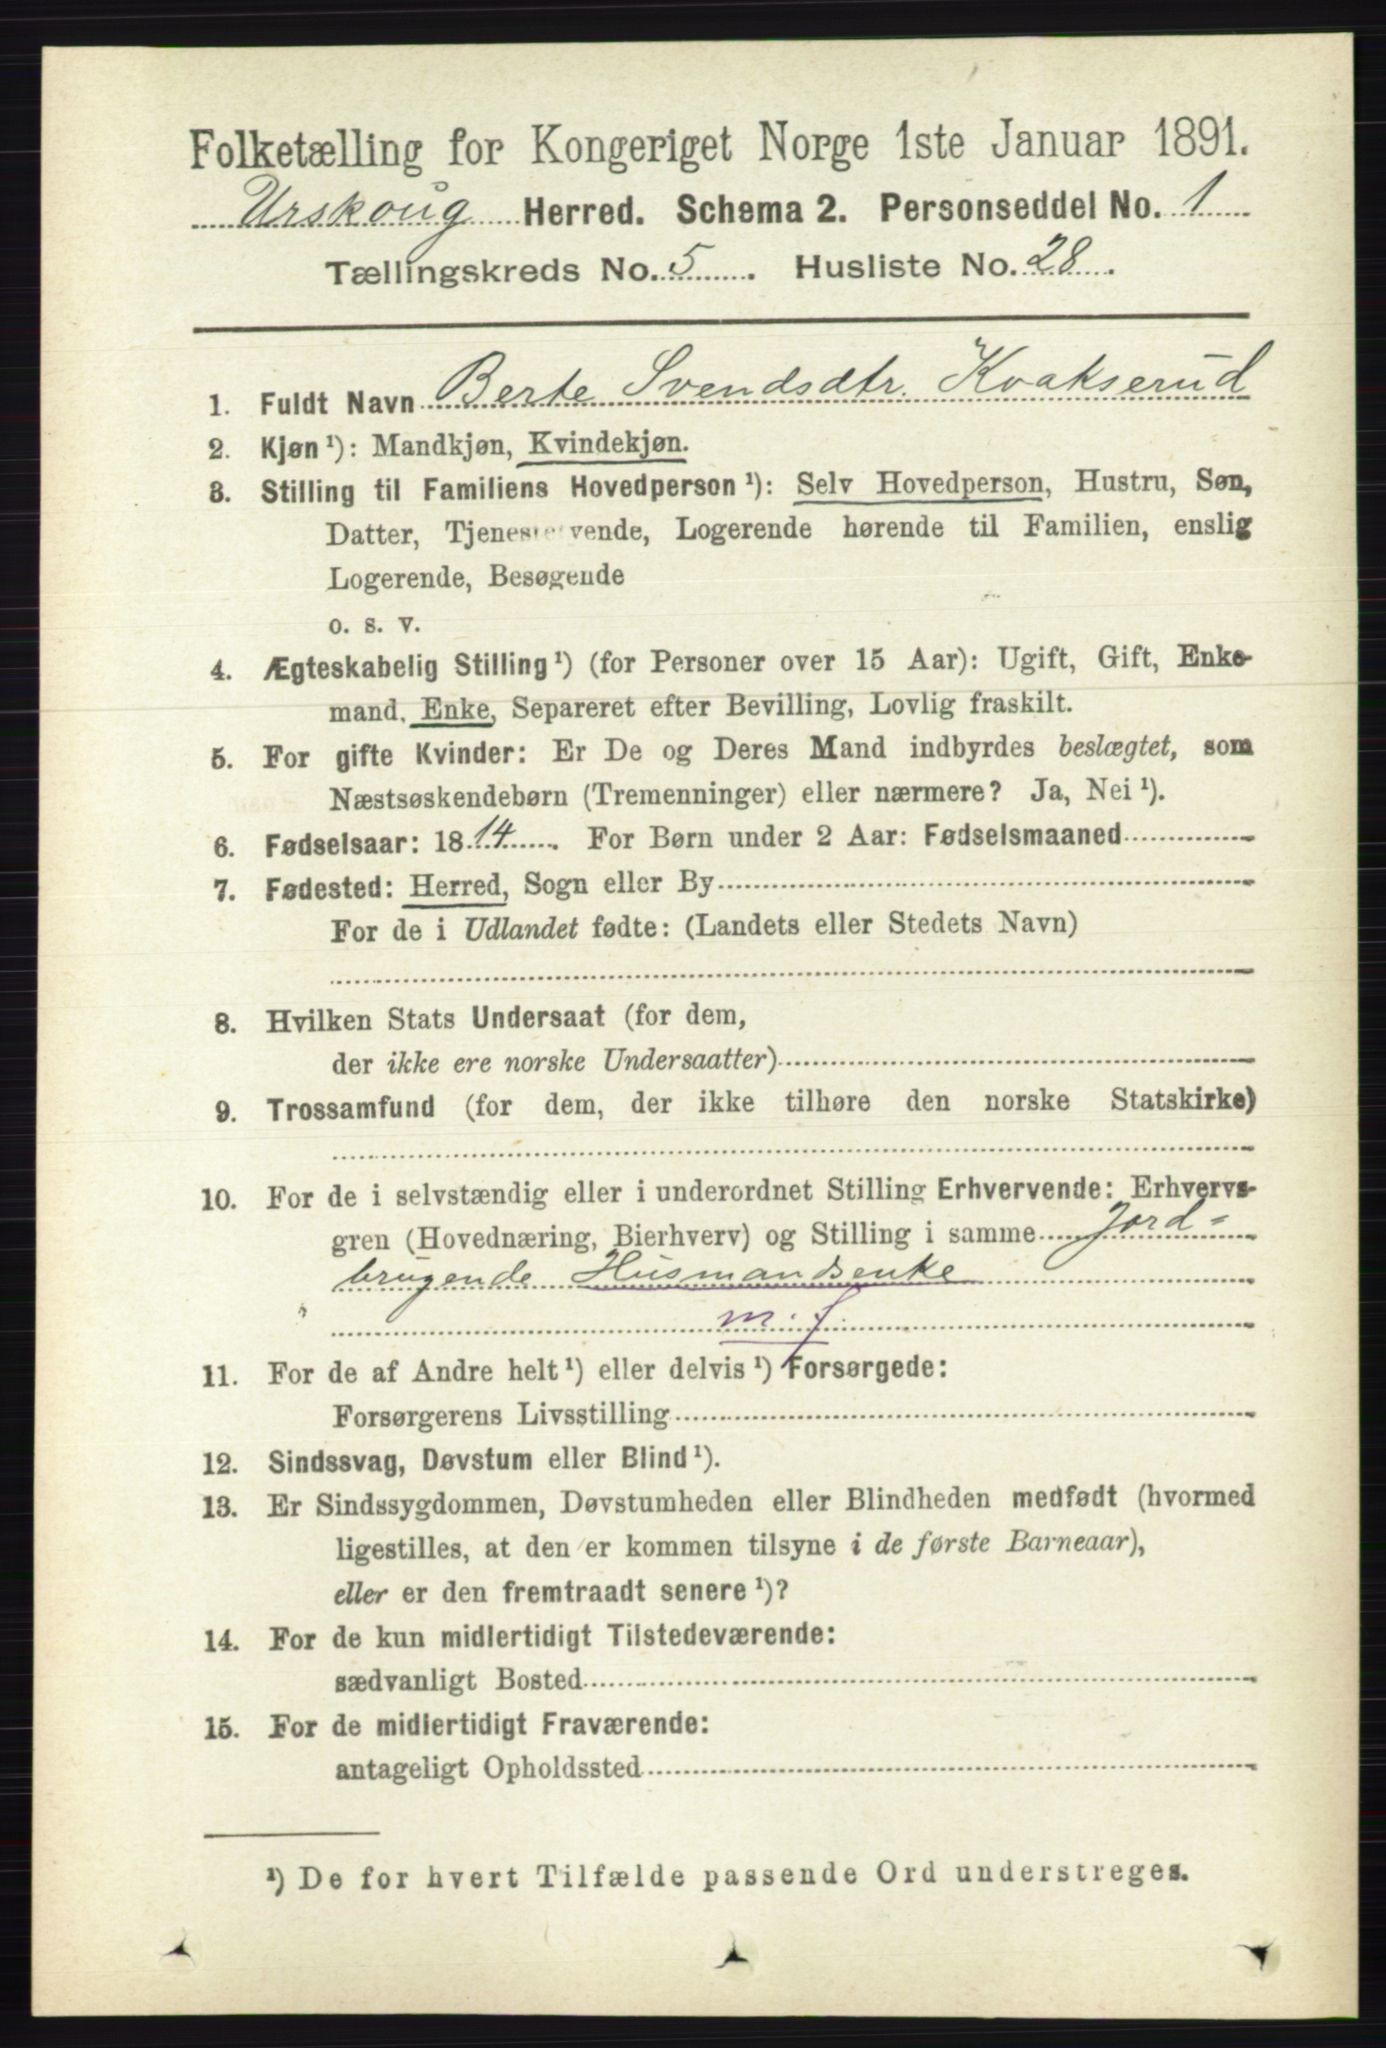 Folketælling for Kongeriget Norge 1ste Januar 1891.
Urskoug Herred. Schema 2. Personseddel No. 1
Tællingskreds No. 5. Husliste No. 28.
1. Fuldt Navn Berte Svendsdtr. Kvakserud
2. Kjøn ¹): Mandkjøn, Kvindekjøn.
3. Stilling til Familiens Hovedperson ¹): Selv Hovedperson, Hustru, Søn,
Datter, Tjenestetyende, Logerende hørende til Familien, enslig
Logerende, Besøgende
o. s. v.
4. Ægteskabelig Stilling ¹) (for Personer over 15 Aar): Ugift, Gift, Enke-
mand, Enke, Separeret efter Bevilling, Lovlig fraskilt.
5. For gifte Kvinder: Er De og Deres Mand indbyrdes beslægtet, som
Næstsøskendebørn (Tremenninger) eller nærmere? Ja, Nei ¹).
6. Fødselsaar: 1814. For Børn under 2 Aar: Fødselsmaaned
7. Fødested: Herred, Sogn eller By
For de i Udlandet fødte: (Landets eller Stedets Navn)
8. Hvilken Stats Undersaat (for dem,
der ikke ere norske Undersaatter)
9. Trossamfund (for dem, der ikke tilhøre den norske Statskirke)
10. For de i selvstændig eller i underordnet Stilling Erhvervende: Erhvervs-
gren (Hovednæring, Bierhverv) og Stilling i samme Jord-
brugende Husmandsenke
m. f.
11. For de af Andre helt ¹) eller delvis ¹) Forsørgede:
Forsørgerens Livsstilling
12. Sindssvag, Døvstum eller Blind ¹).
13. Er Sindssygdommen, Døvstumheden eller Blindheden medfødt (hvormed
ligestilles, at den er kommen tilsyne i de første Barneaar),
eller er den fremtraadt senere ¹)?
14. For de kun midlertidigt Tilstedeværende:
sædvanligt Bosted
15. For de midlertidigt Fraværende:
antageligt Opholdssted
¹) De for hvert Tilfælde passende Ord understreges.